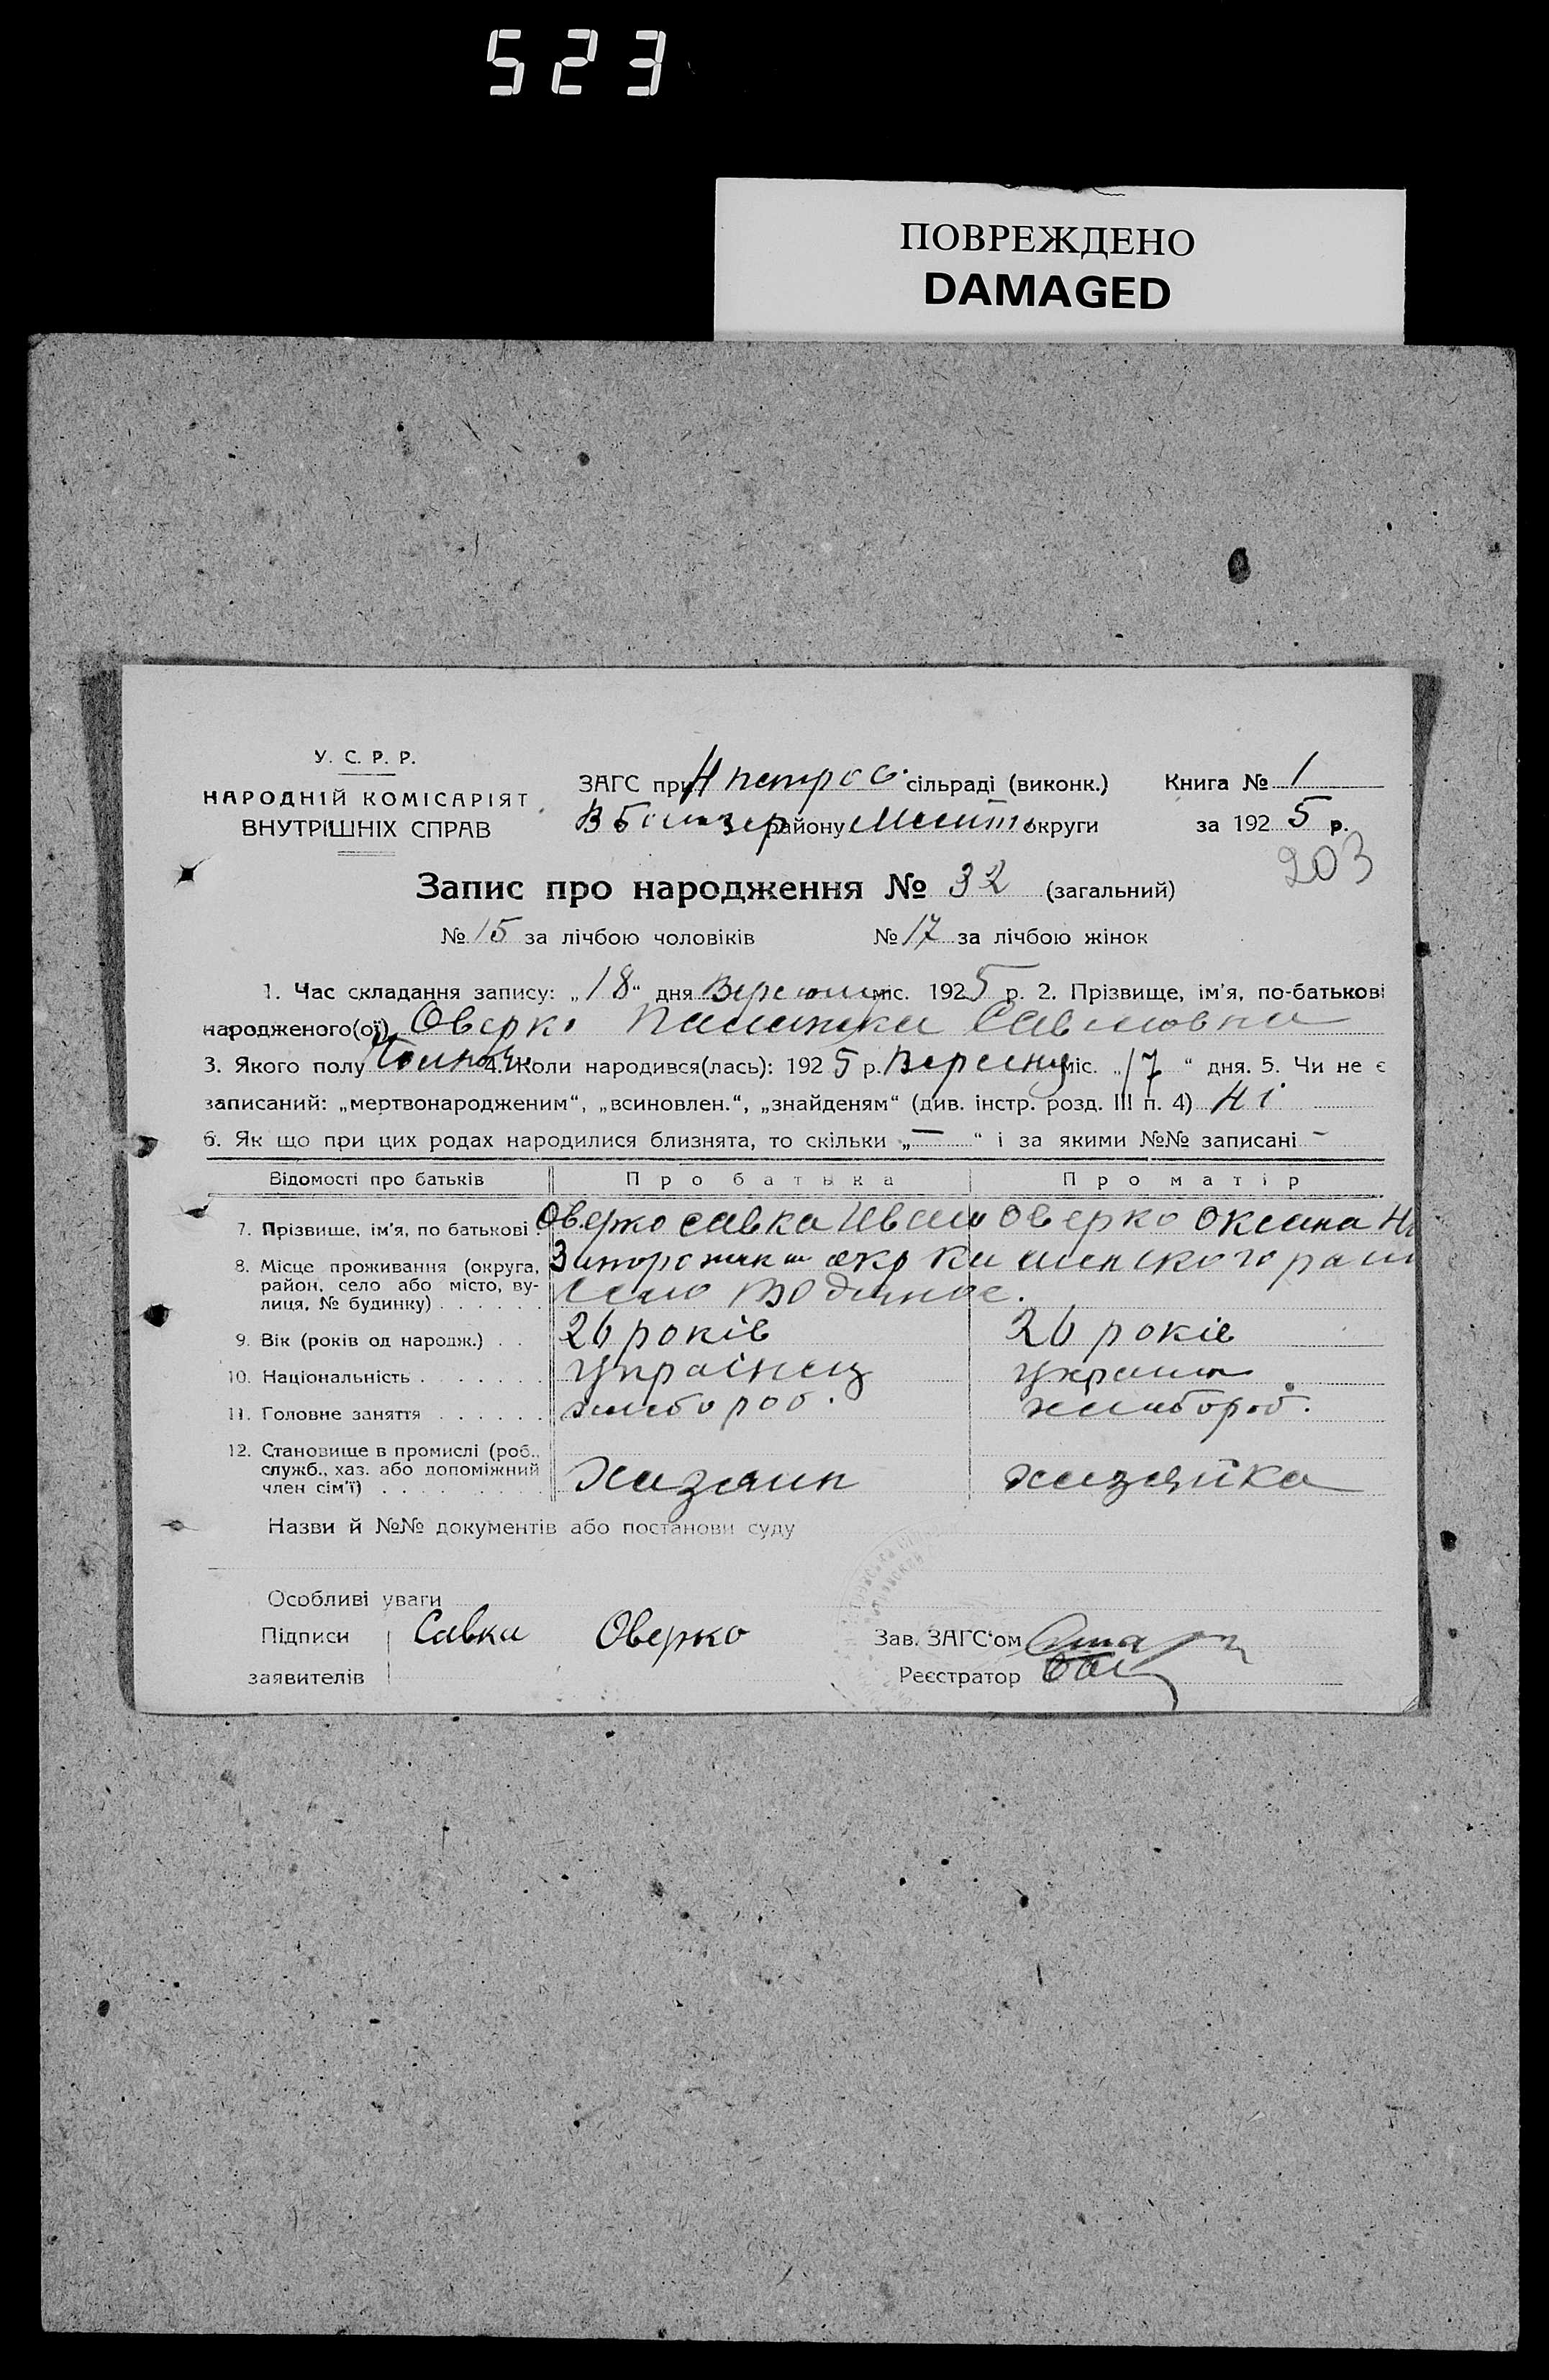 523
ПОВРЕЖДЕНО
DAMAGED
У. С. Р. Р.
НАРОДНІЙ КОМІСАРІЯТ
ВНУТРІШНІХ СПРАВ
ЗАГС при Н петров. сільраді (виконк.)
району округи
Книга № 1
за 1925 р.
203
Запис про народження № 32 (загальний)
№ 15 за лічбою чоловіків № 17 за лічбою жінок
1. Час складання запису: „18“ дня міс. 1925 р. 2. Прізвище, ім'я, по-батькові
народженого(ої) Оверко Савловна
3. Якого полу 4. Коли народився(лась): 1925 р. Вересну міс. „17“ дня. 5. Чи не є
записаний: „мертвонародженим“, „всиновлен.“, „знайденям“ (див. інстр. розд. III п. 4) Ні
6. Як що при цих родах народилися близнята, то скільки „—“ і за якими №№ записані —
Відомості про батьків Про батька Про матір
7. Прізвище, ім'я, по батькові. Оверко Савка Иван Оверко Оксана
8. Місце проживання (округа, район, село або місто, вулиця, № будинку) окр
село Водяное.
9. Вік (років од народж.) 26 років 26 років
10. Національність українец
11. Головне заняття хлебороб. хлебороб.
12. Становище в промислі (роб., служб., хаз. або допоміжний член сім'ї) хазяин хазяйка
Назви й №№ документів або постанови суду
Особливі уваги
Підписи Савка Оверко
заявителів
Зав. ЗАГС'ом
Реєстратор